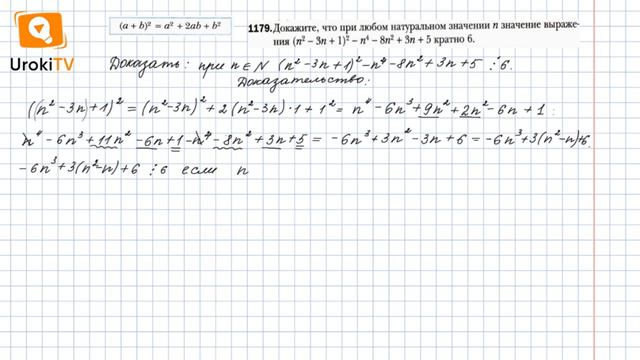 UrokiTV
(a + b)² = a² + 2ab + b²
1179. Докажите, что при любом натуральном значении n значение выраже-
ния (n² – 3n + 1)² – n⁴ – 8n² + 3n + 5 кратно 6.
Доказать: при n ∈ N (n² – 3n + 1)² – n⁴ – 8n² + 3n + 5 ⋮ 6.
Доказательство:
((n² – 3n) + 1)² = (n² – 3n)² + 2(n² – 3n)·1 + 1² = n⁴ – 6n³ + 9n² + 2n² – 6n + 1 :
n⁴ – 6n³ + 11n² – 6n + 1 – n⁴ – 8n² + 3n + 5 = – 6n³ + 3n² – 3n + 6 = – 6n³ + 3(n² – n) + 6.
– 6n³ + 3(n² – n) + 6 ⋮ 6 если n